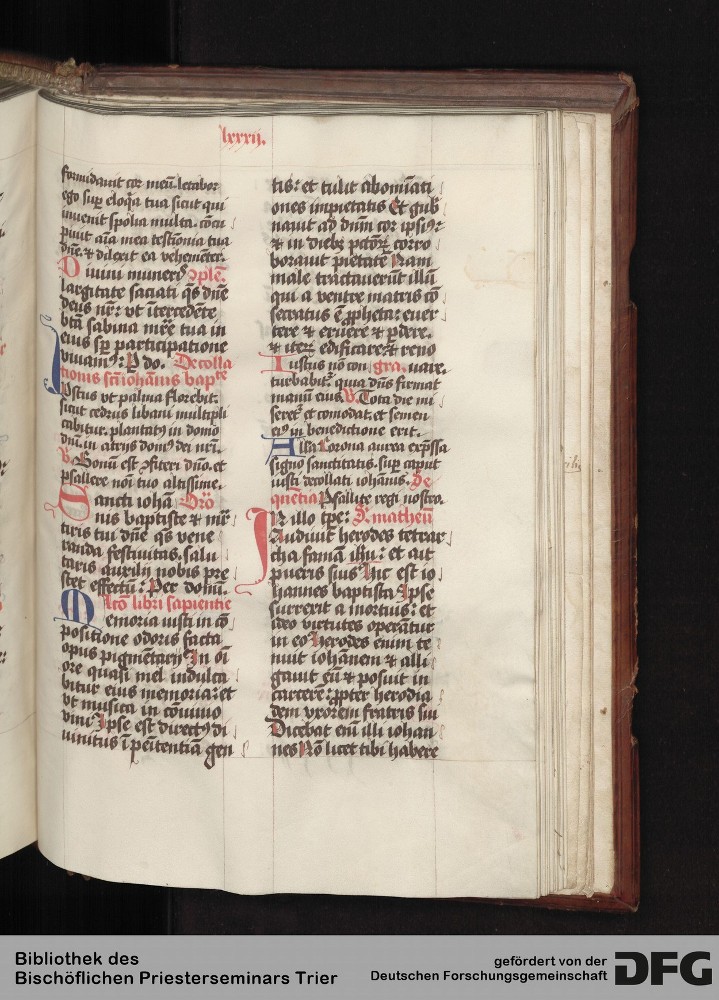 lxxxij.
formidauit cor meū. letabor
ego sup eloqͣa tua sicut qui
inuenit spolia multa. cōcu
piuit aīa mea testīonia tua
dn̄e. ⁊ dilexit ea vehemēter.
Diuini munerꝭ ꝯplē.
largitate saciati qs dn̄e
deus nr̄: vt ītercedēte
btā sabina mr̄e tua in
eius sp participatione
viuamꝰ: P do. De colla
tionis sctī iohānis bapte
Iustus vt palma florebit.
sicut cedrus libani multipli
cabitur. plantatꝰ in domo
dnī. in atrijs domꝰ dei nr̄i.
V. Bonū est ꝯfiteri dnō. et
psallere noī tuo altissime.
Sancti iohā Orō
nis baptiste ⁊ mr̄
tiris tui dn̄e qs vene
randa festiuitas. salu
taris auxilij nobis pre
stet effectū: Per domī.
Lcō libri sapientie
Memoria iusti in cō
positione odoris facta
opus pigmētarij In oī
ore quasi mel indulca
bitur eius memoria: et
vt musica in cōuiuio
vini Ipse est directꝰ di
uinitus ī penitentiā gen
tis: et tulit abomīati
ones impietatis Et gub
nauit ad dnm cor ipsiꝰ:
⁊ in diebꝫ pctōꝝ corro
borauit pietatē Nam
male tractauerūt illū
qui a ventre matris cō
secratus ē ꝓpheta: euer
tere ⁊ eruere ⁊ pdere.
⁊ iteꝝ edificare ⁊ reno
Iustus nō con gra. uare.
turbabitꝰ. quia dn̄s firmat
manū eius. V. Tota die mi
seretꝰ et comodat. et semen
eiꝰ in benedictione erit.
Alla Corona aurea exp̄ssa
signo sanctitatis. sup caput
iusti decollati iohānis. Se
quētia Psallite regi nostro.
In illo tpe: S. matheū
Audiuit herodes tetrar
cha famā ihu: et ait
pueris suis Hic est io
hannes baptista Ipse
surrexit a mortuis: et
ideo virtutes operātur
in eo Herodes enim te
nuit iohānem ⁊ alli
gauit eū ⁊ posuit in
carcerē: ꝓpter herodia
dem vxorem fratris sui
Dicebat enī illi iohan
nes Nō licet tibi habere
Bibliothek des
Bischöflichen Priesterseminars Trier
gefördert von der
Deutschen Forschungsgemeinschaft
DFG